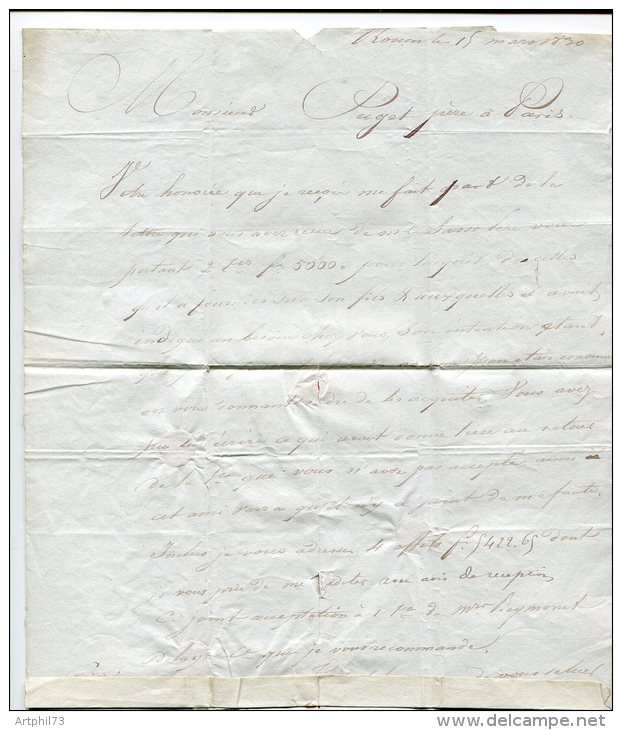 Rouen le 15 mars 1830
Monsieur Puget père à Paris
Votre honorée que je reçois me fait part de la
lettre que vous avez reçue de mr père
portant 2 tes f 5000. pour l'acquit de celles
qu'il a fournies sur son fils & auxquelles il avait
indiqué un besoin chez vous, Son intention étant,
convenu
en vous donnant ordre de les acquiter. Vous avez
pu lui écrire ce qui avait donné lieu au retour
de la te que vous n'avez pas acceptée, ainsi
cet ami verra qu'il n'y a point de ma faute.
Inclus je vous adresse 4 effets f. 5422.65 dont
je vous prie de me créditer avec avis de reception
Ci joint acceptation à 1 te de mrs Reymonet
ce que je vous recommande.
de vous saluer
Artphil73
www.delcampe.net